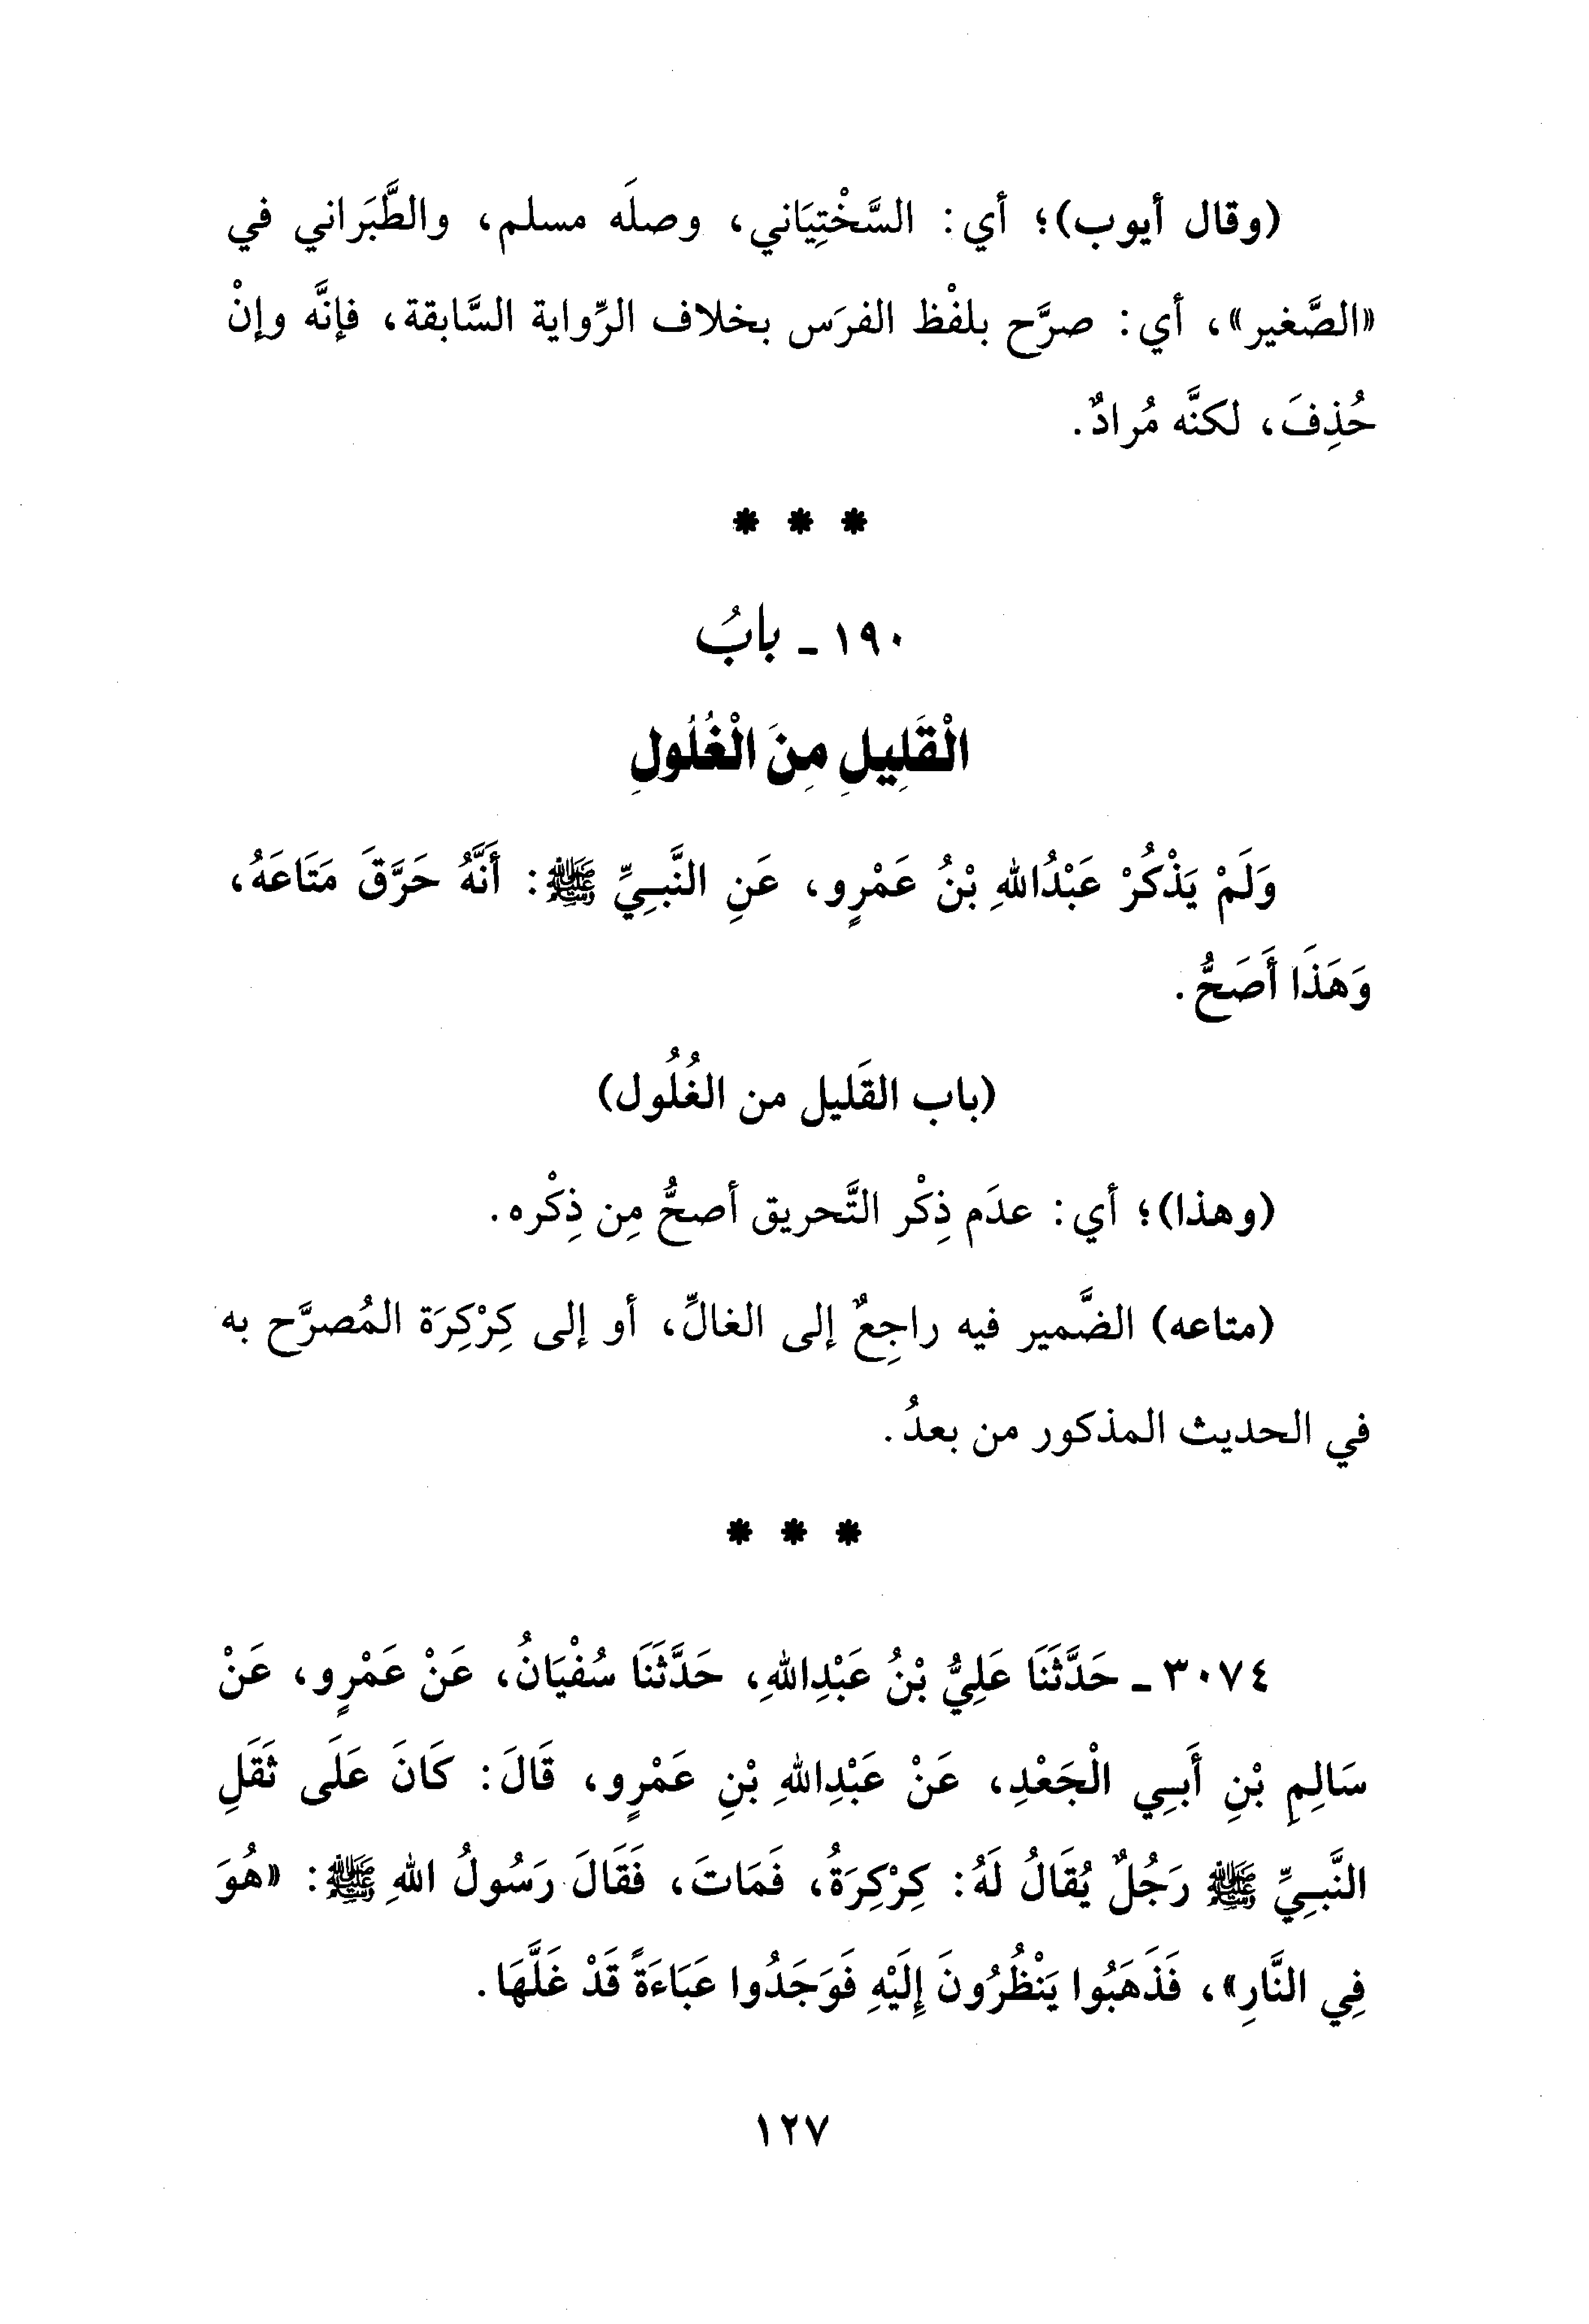 (وقال أيوب)؛ أي: السَّخْتِيَاني، وصلَه مسلم، والطَّبَراني في
«الصَّغير»، أي: صرَّح بلفْظ الفرَس بخلاف الرِّواية السَّابقة، فإنَّه وإنْ
حُذِفَ، لكنَّه مُرادٌ.
* * *
١٩٠ - بابُ
الْقَلِيلِ مِنَ الْغُلُولِ
وَلَمْ يَذْكُرْ عَبْدُاللهِ بْنُ عَمْرٍو، عَنِ النَّبِيِّ ﷺ: أَنَّهُ حَرَّقَ مَتَاعَهُ،
وَهَذَا أَصَحُّ.
(باب القَليل من الغُلُول)
(وهذا)؛ أي: عدَم ذِكْر التَّحريق أصحُّ مِن ذِكْره.
(متاعه) الضَّمير فيه راجِعٌ إلى الغالِّ، أو إلى كِرْكِرَة المُصرَّح به
في الحديث المذكور من بعدُ.
* * *
٣٠٧٤ - حَدَّثَنَا عَلِيُّ بْنُ عَبْدِاللهِ، حَدَّثَنَا سُفْيَانُ، عَنْ عَمْرٍو، عَنْ
سَالِمِ بْنِ أَبِي الْجَعْدِ، عَنْ عَبْدِاللهِ بْنِ عَمْرٍو، قَالَ: كَانَ عَلَى ثَقَلِ
النَّبِيِّ ﷺ رَجُلٌ يُقَالُ لَهُ: كِرْكِرَةُ، فَمَاتَ، فَقَالَ رَسُولُ اللهِ ﷺ: «هُوَ
فِي النَّارِ»، فَذَهَبُوا يَنْظُرُونَ إِلَيْهِ فَوَجَدُوا عَبَاءَةً قَدْ غَلَّهَا.
١٢٧